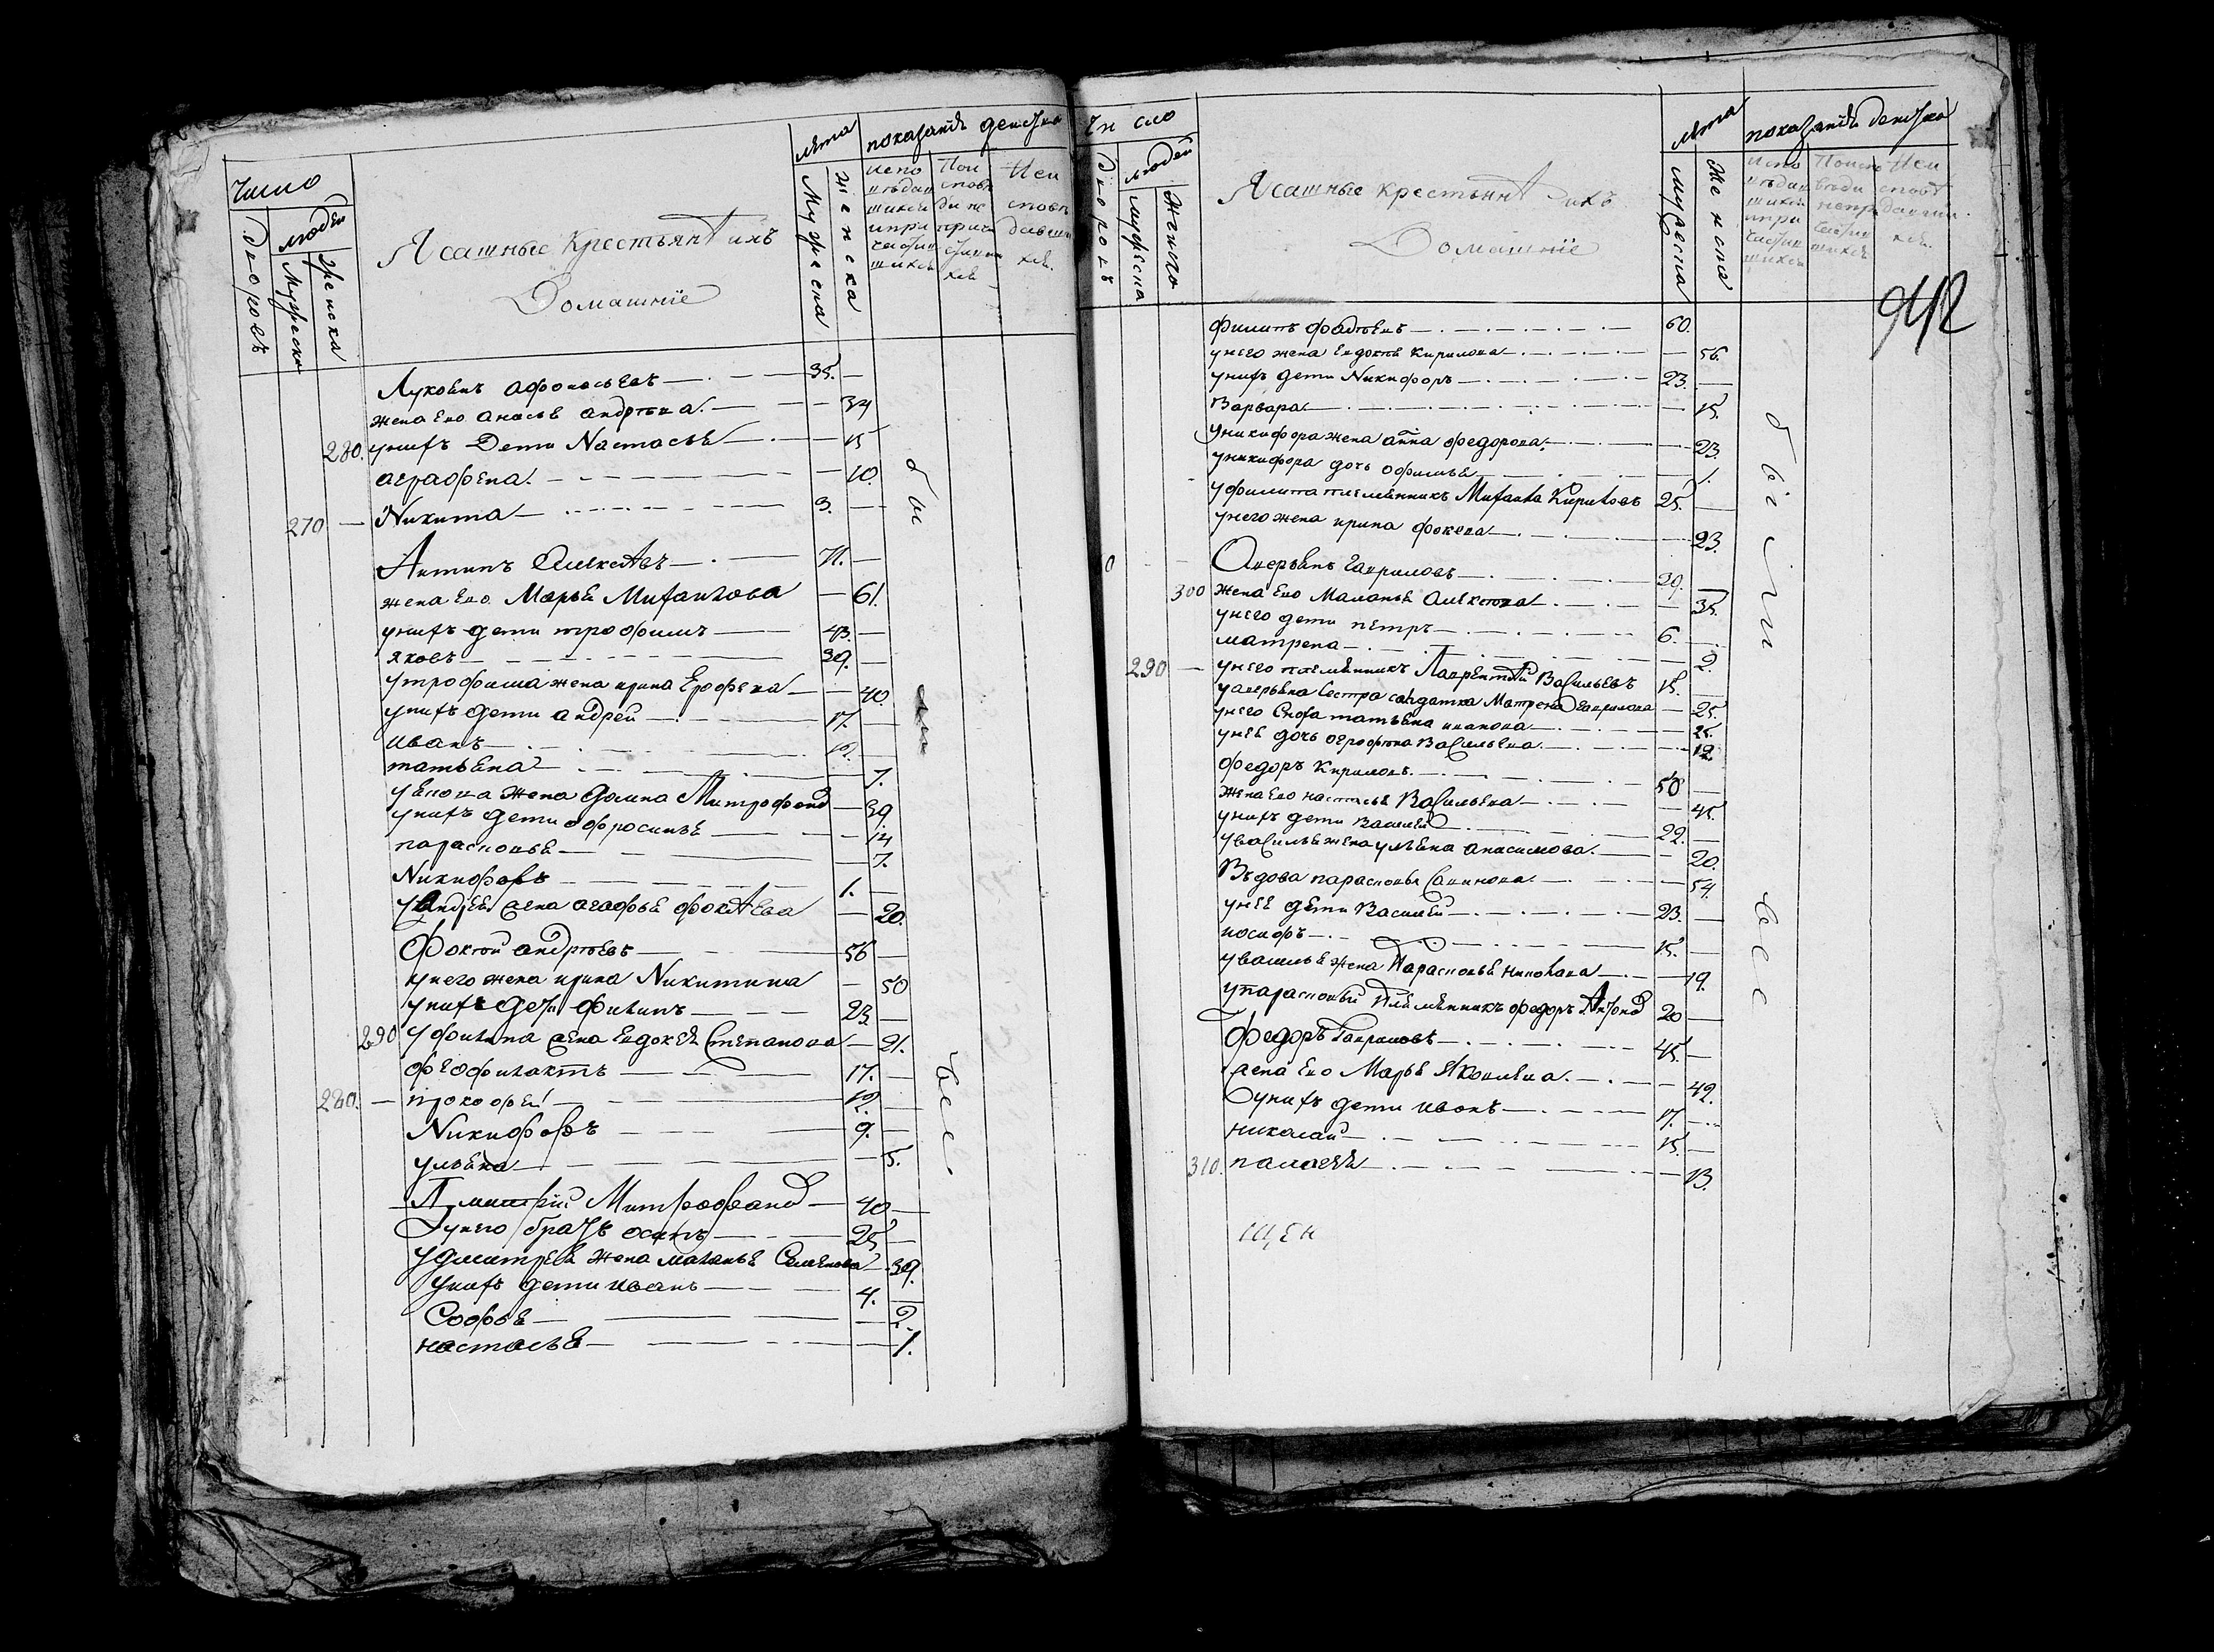 число
дворовъ
людей
мужеска
женска
Ясашные крестьянѣ ихъ
Домашнїе
лѣта
мужеска
женска
показанїѣ
испо вѣдав шихся и при частив шихся
исповѣ давших ся.
Луковнъ афонасьевъ 35.
жена ево анасья андрѣева. 34
280. у нихъ Дети Настасья 15
аграфена. 10.
270 Никита 3.
Антипъ Алексѣевъ 71.
жена ево Марья Михаилова 61.
у нихъ дети трофимъ 43.
яковъ 39.
у трофима жена ирина Ерофеева 40.
у нихъ дети андрей 17.
иванъ 12.
татьяна 7.
у якова жена домна Митрофанов 39.
у нихъ дети офросинья 14
парасковья 7.
Никифоръ 1.
у андрея жена агафья фоктѣева 20.
Фоктей андрѣевъ 56
у него жена ирина Никитина 50
у нихъ дети Филипъ 23.
290 у филипа жена Евдокея Степанова 21.
феофилактъ 17.
280. прокофей 12.
Никифоръ 9.
ульяна 5.
Дмитрїй Митрофанов 40
у него братъ осипъ 25
у дмитрея жена маланья Семенова 39.
у нихъ дети иванъ 4.
Софья 2.
настасья 1.
бы
ли
все
число
дворовъ
людей
мужеска
женска
Ясашные крестьянѣ ихъ
Домашнїе
лѣта
мужеска
женска
показанїѣ
942
филипъ фадѣевъ 60.
у него жена Евдокѣя Кирилова 56.
у нихъ дети Никифоръ 23.
Варвара 15.
у никифора жена анна федорова 23.
у никифора дочь офимья 1.
у филипа племянникъ Михаила Кириловъ 25.
у него жена ирина фокеева 23.
Аверьянъ Гавриловъ 39.
300 жена ево Маланья алексѣева 35.
у него дети петръ 6.
матрена 2.
290 у него племянникъ Лаврентѣй Васильевъ 15.
у аверьяна сестра салдатка Матрена Гаврилова 25.
у него сноха татьяна иванова 25.
у нея дочь аграфѣна Васильева 12.
федоръ Кириловъ 50
жена ево настасья Васильева 45.
у нихъ дети Василей 22.
у василья жена ульяна анасимова. 20.
Вдова парасковья Савинова 54.
у нея дети Василей 23.
иосифъ 15.
у василья жена Парасковья николаева 19.
у парасковьи племянникъ федоръ Антонов 20
федоръ Гавриловъ 45.
жена ево Марья Яковлева 42.
у нихъ дети иванъ 17.
николай 15.
310. палагея 13.
бы
ли
все
щен